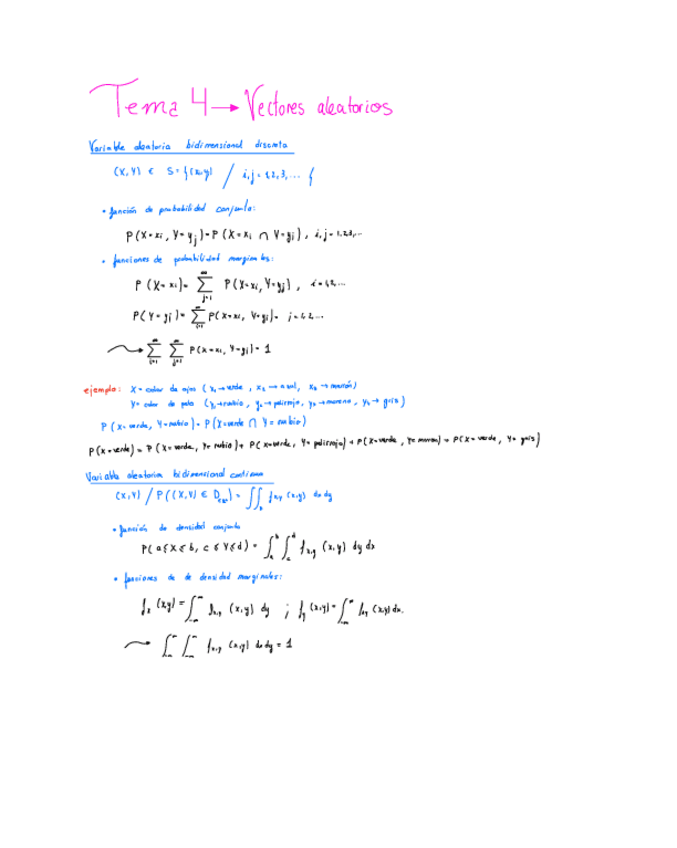 Tema 4 → Vectores aleatorios
Variable aleatoria bidimensional discreta
(X,Y) ∈ S = {(xi,yj) / i,j = 1,2,3,... {
• función de probabilidad conjunta:
P(X=xi, Y=yj) = P(X=xi ∩ Y=yj), i,j=1,2,3,...
• funciones de probabilidad marginales:
P(X=xi) = ∑ j=1 ∞ P(X=xi, Y=yj), i=1,2,...
P(Y=yj) = ∑ i=1 ∞ P(X=xi, Y=yj) = j=1,2,...
→ ∑ i=1 ∞ ∑ j=1 ∞ P(X=xi, Y=yj) = 1
ejemplo: X = color de ojos (x₁→verde, x₂→azul, x₃→marrón)
Y = color de pelo (y₁→rubio, y₂→pelirrojo, y₃→moreno, y₄→gris)
P(X=verde, Y=rubio) = P(X=verde ∩ Y=rubio)
P(X=verde) = P(X=verde, Y=rubio) + P(X=verde, Y=pelirrojo) + P(X=verde, Y=marron) + P(X=verde, Y=gris)
Variable aleatoria bidimensional continua
(X,Y) / P((X,Y) ∈ D) = ∬ D fx,y (x,y) dx dy
• función de densidad conjunta
P(a≤X≤b, c≤Y≤d) = ∫ a b ∫ c d fx,y (x,y) dy dx
• funciones de de densidad marginales:
fx (x,y) = ∫ -∞ ∞ fx,y (x,y) dy ; fy (x,y) = ∫ -∞ ∞ fx,y (x,y) dx.
→ ∫ -∞ ∞ ∫ -∞ ∞ fx,y (x,y) dx dy = 1